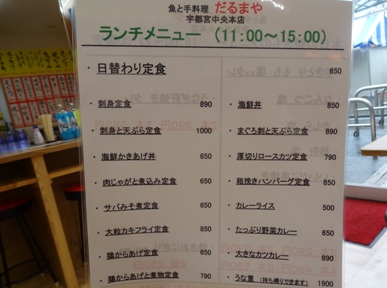 魚と手料理 だるまや
宇都宮中央本店
ランチメニュー (11:00～15:00)
・日替わり定食 650
・刺身定食 890
・刺身と天ぷら定食 1000
・海鮮かきあげ丼 650
・肉じゃがと煮込み定食 650
・サバみそ煮定食 650
・大粒カキフライ定食 850
・鶏から揚げ定食 650
・鶏からあげと煮物定食 790
・海鮮丼 890
・まぐろ刺と天ぷら定食 890
・厚切りロースカツ定食 790
・粗挽きハンバーグ定食 850
・カレーライス 500
・たっぷり野菜カレー 650
・大きなカツカレー 890
・うな重 (持ち帰りできます) 1900